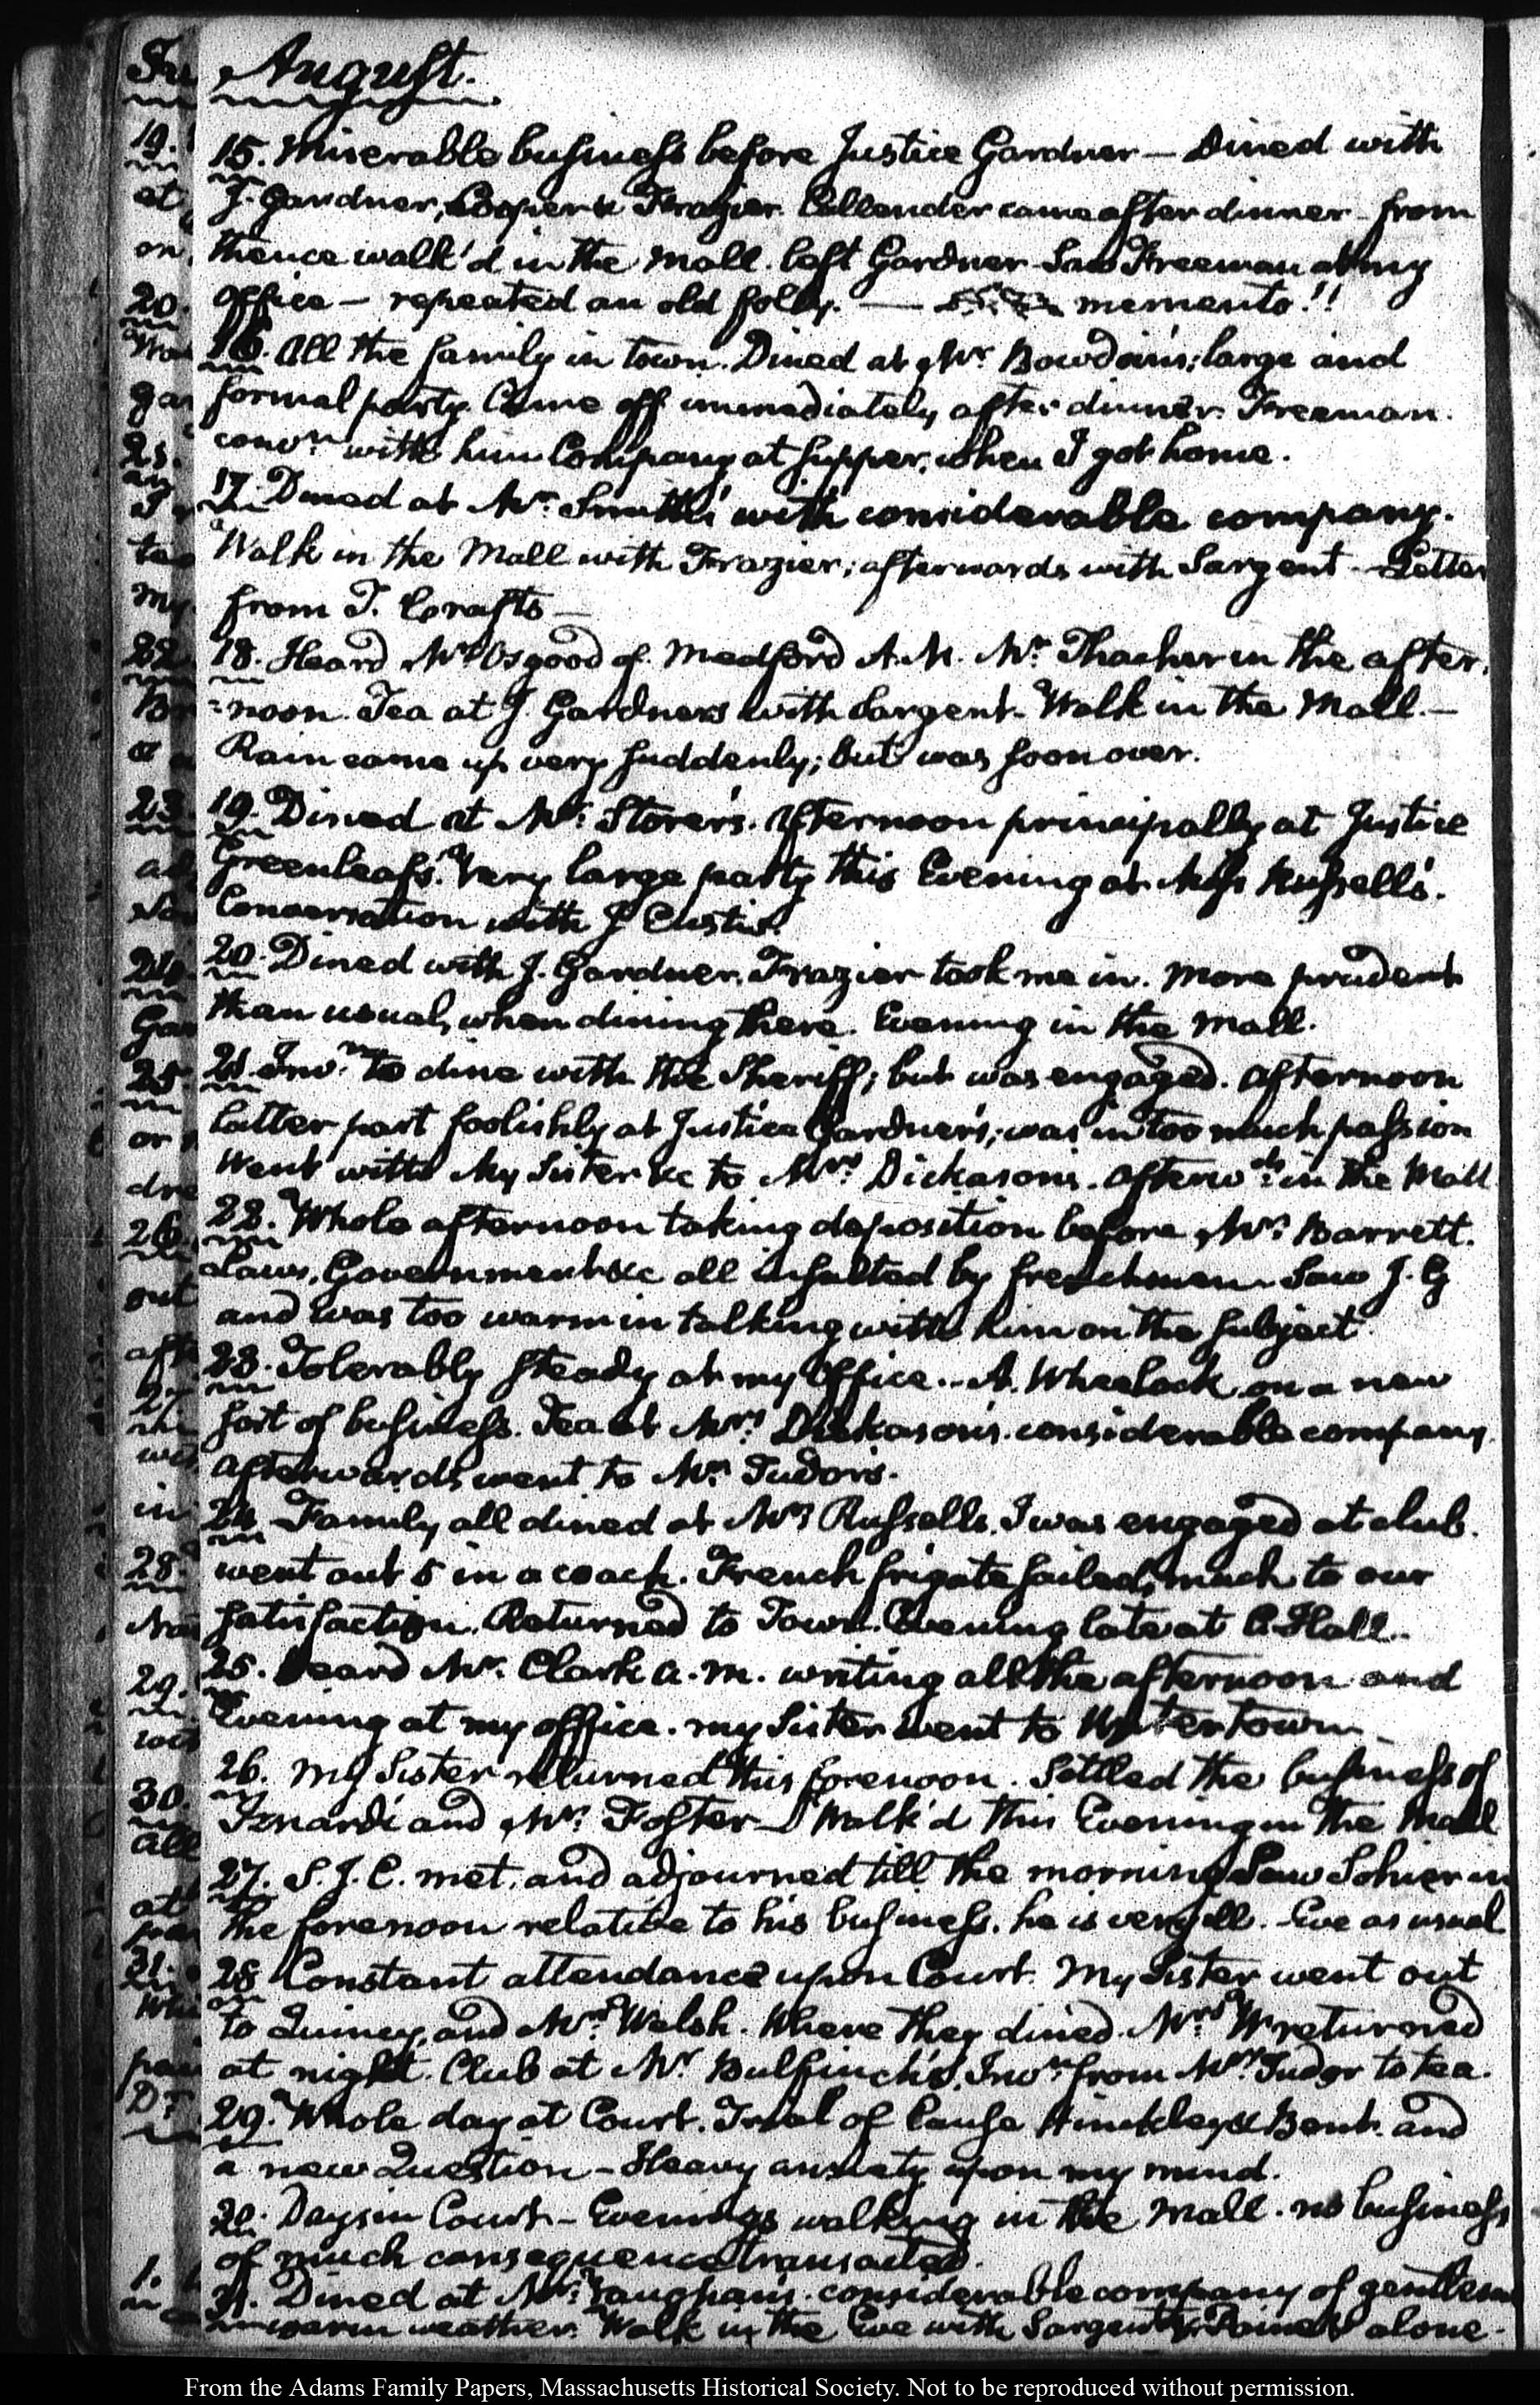 August.
15. Miserable business before Justice Gardner — Dined with
J. Gardner, Cooper & Frazier. Callender came after dinner — from
thence walk'd in the Mall. left Gardner Saw Freeman at my
office — repeated an old folly. — memento!!
16. All the family in town. Dined at Mr. Bowdoin's; large and
formal party. Came off immediately after dinner. Freeman.
convn. with him Company at supper, when I got home.
17. Dined at Mr. Smith's with considerable company.
Walk in the Mall with Frazier; afterwards with Sargent — Letter
from T. Crafts —
18. Heard Mr. Osgood of Medford A.M. Mr. Thacher in the after-
=noon. Tea at J. Gardners with Sargent. Walk in the Mall. —
Rain came up very suddenly; but was soon over.
19. Dined at Mr. Storer's. Afternoon principally at Justice
Greenleafs. Very large party this Evening at Miss Russell's.
Conversation with J
20. Dined with J. Gardner. Frazier took me in. more prudent
than usual, when dining there. Evening in the Mall.
21. Invn. to dine with the Sheriff; but was engaged. Afternoon
latter part foolishly at Justice Gardner's; was in too much passion
Went with My Sister &c to Mrs. Dickason's. Afterwds. in the Mall
22. Whole afternoon taking deposition before Mr. Barrett.
Laws, Government &c all insulted by frenchmen. Saw J. G
and was too warm in talking with him on the subject.
23. Tolerably steady at my Office. — A. Wheelock on a new
sort of business. Tea at Mrs. Dickason's. considerable company.
Afterwards, went to Mr. Tudor's.
24. Family all dined at Mrs Russells. I was engaged at club.
went out 5 in a coach. French frigate sailed, much to our
satisfaction. Returned to Town. Evening late at C. Hall.
25. Heard Mr. Clark a.m. writing all the afternoon and
Evening at my office. my Sister went to Watertown
26. My Sister returned this forenoon. Settled the business of
and Mr. Foster — Walk'd this Evening in the Mall
27. S. J. C. met, and adjourned till the morning Saw Sohier in
the forenoon relative to his business. he is very ill. — Eve as usual
28 Constant attendance upon Court. My Sister went out
to Quincy, and Mrs. Welsh. Where they dined. Mrs. W returned
at night. Club at Mr. Bulfinch's. Invn. from Mrs. Tudor to tea.
29. Whole day at Court. Trial of Cause Hinckley & Bent. and
a new Question — Heavy anxiety upon my mind.
30. Days in Court — Evenings walking in the Mall. no business
of much consequence transacted.
31. Dined at Mr. Vaughan's. considerable company of gentlem
warm weather. Walk in the Eve with Sargent, alone.
From the Adams Family Papers, Massachusetts Historical Society. Not to be reproduced without permission.